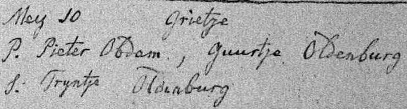 Mey 10 Grietje
P. Pieter Obdam, Guurtje Oldenburg
S. Tryntje Oldenburg